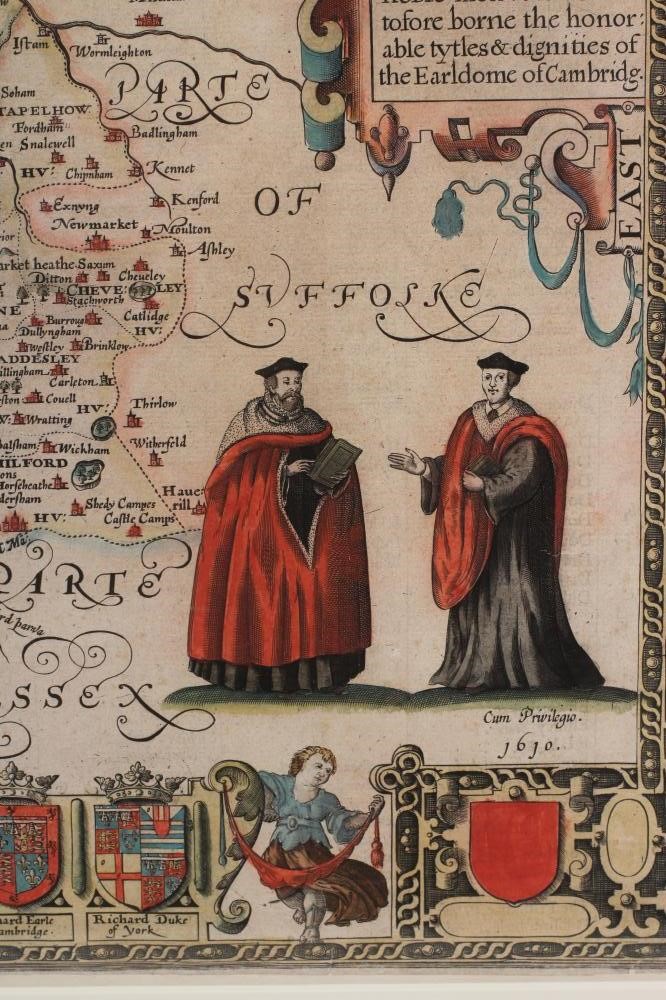 tofore borne the honor:
able tytles & dignities of
the Earldome of Cambridg.
EAST
Istam
Wormleighton
PARTE
OF
SVFFOLKE
Soham
Fordham
Badlingham
Snalewell
HV:
Chipnham
Kennet
Kenford
Exnyng
Newmarket
Moulton
Ashley
heathe
Saxum
Ditton
Cheveley
CHEVE
LEY
Stachworth
Catlidge
HV:
Burrough
Dullyngham
Westley
Brinklow
Carleton
Cowell
HV:
Thirlow
Wratting
Wickham
Witherfeld
Horseheathe
Haue
rill
Shedy Campes
HV:
Castle Camps
PARTE
Cum Privilegio.
1610.
Richard Duke
of York